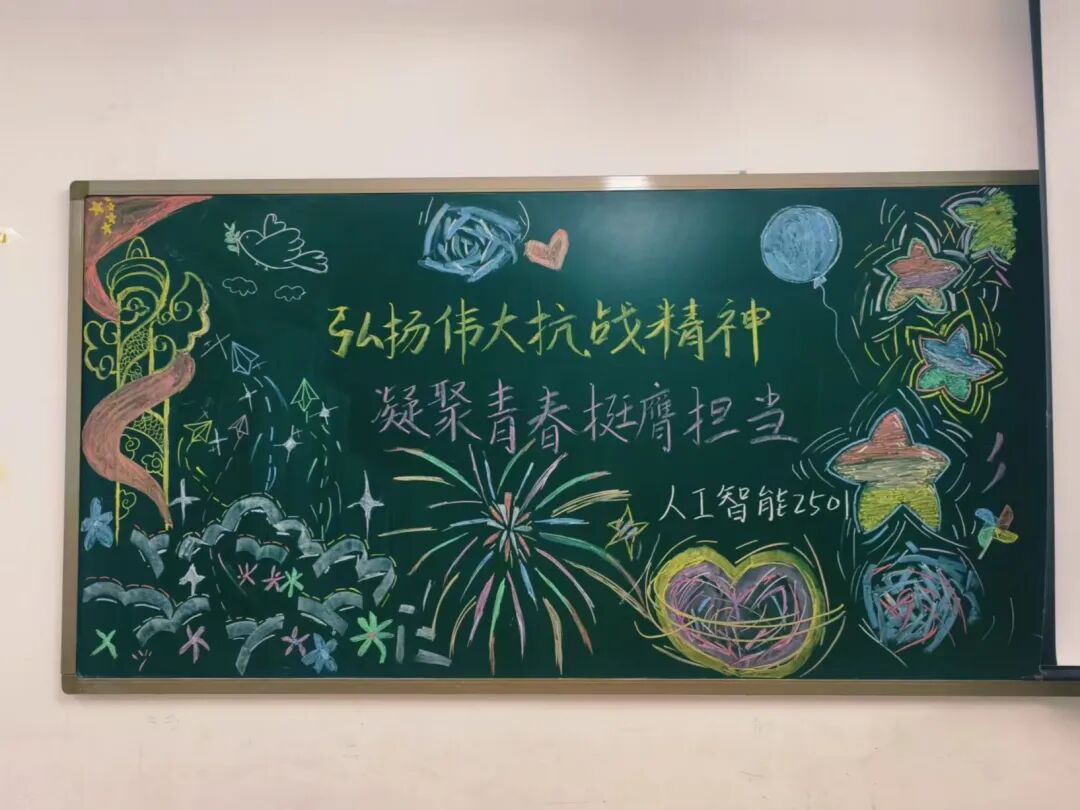 弘扬伟大抗战精神
凝聚青春挺膺担当
人工智能2501